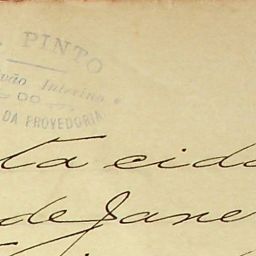 PINTO
Interino
DO
DA PROVEDORIA
ta cida
de Jane